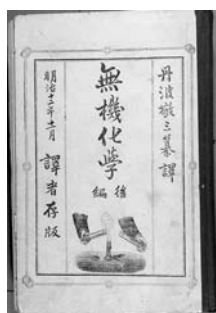 丹波敬三纂譯
無機化學
後編
明治十二年十一月
譯者存版